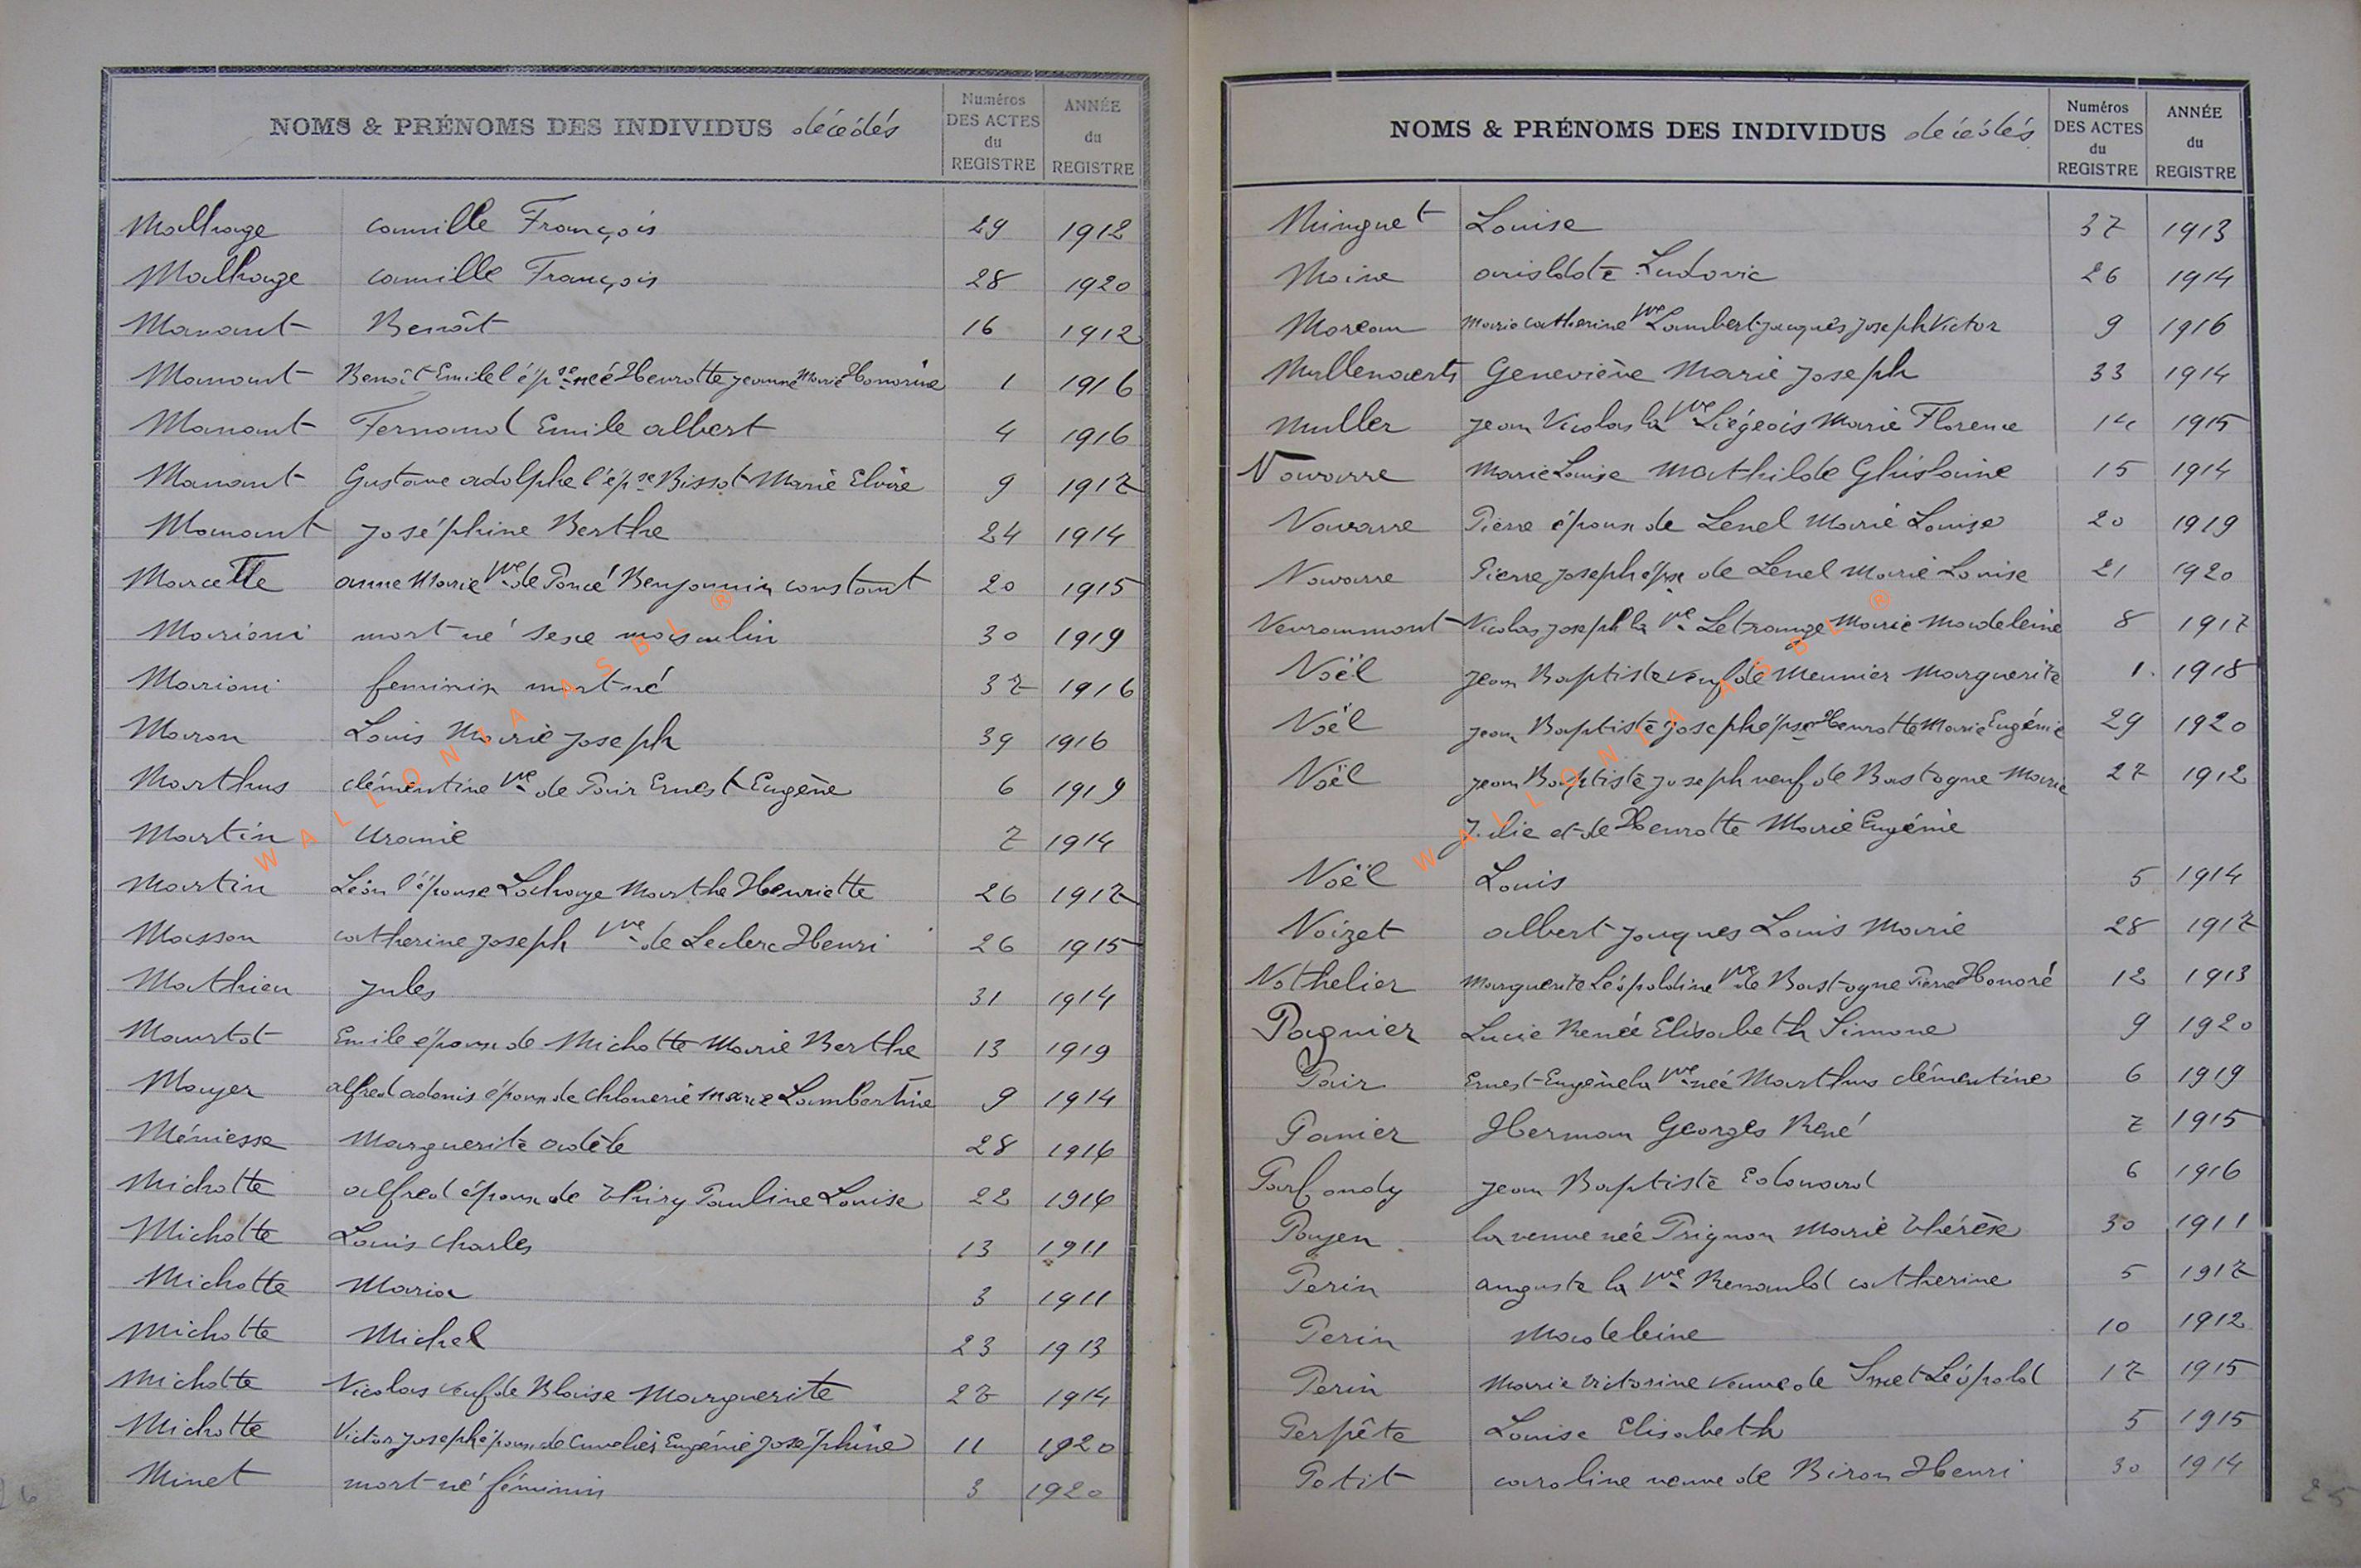 NOMS & PRÉNOMS DES INDIVIDUS décédés
Numéros DES ACTES du REGISTRE
ANNÉE du REGISTRE
Malhage camille François 29 1912
Malhage camille François 28 1920
Manant Benoît 16 1912
Manant Benoît Emile l'épse née Henrotte jeanne Marie Honorine 1 1916
Manant Fernand Emile albert 4 1916
Manant Gustave adolphe l'épse Bissot Marie Elvire 9 1917
Manant Joséphine Berthe 24 1914
Marcette anne Marie Vve de Poncé Benjamin constant 20 1915
Marioni mort né sexe masculin 30 1919
Marioni feminin mort né 37 1916
Maron Louis Marie Joseph 39 1916
Marthus clémentine Vve de Pair Ernest Eugène 6 1919
Martin Uranie 7 1914
Martin Léon l'épouse Lahaye Marthe Henriette 26 1917
Masson catherine Joseph Vve de Leclerc Henri 26 1915
Mathieu Jules 31 1914
Maurtot Emile époux de Michotte Marie Berthe 13 1919
Mayer alfred adonis époux de Marie Lambertine 9 1914
Méniesse Marguerite adèle 28 1916
Michotte alfred époux de Thiry Pauline Louise 22 1916
Michotte Louis Charles 13 1911
Michotte Maria 3 1911
Michotte Michel 23 1913
Michotte Nicolas veuf de Blaise Marguerite 27 1914
Michotte Victor Joseph époux de Cuvelier Eugénie Joséphine 11 1920
Minet mort-né féminin 3 1920
NOMS & PRÉNOMS DES INDIVIDUS décédés
Numéros DES ACTES du REGISTRE
ANNÉE du REGISTRE
Minguet Louise 37 1913
Moine aristote Ludovic 26 1914
Moreau Marie catherine Vve Lambert jacques Joseph Victor 9 1916
Mullenaerts Geneviève Marie Joseph 33 1914
Muller Jean Nicolas la Vve Liégeois Marie Florence 14 1915
Navarre Marie Louise Mathilde Ghislaine 15 1914
Navarre Pierre époux de Lenel Marie Louise 20 1919
Navarre Pierre Joseph épx de Lenel Marie Louise 21 1920
Nevraumont Nicolas Joseph la Ve Letrange Marie Madeleine 8 1917
Noël Jean Baptiste veuf de Meunier Marguerite 1. 1918
Noël Jean Baptiste Joseph épse Henrotte Marie Eugénie 29 1920
Noël Jean Baptiste Joseph veuf de Bastogne Marie 27 1912
Julie et de Henrotte Marie Eugénie
Noël Louis 5 1914
Noizet albert jacques Louis Marie 28 1917
Nothelier Marguerite Léopoldine Vve de Bastogne Pierre Honoré 12 1913
Pagnier Lucie Renée Elisabeth Simone 9 1920
Pair Ernest-Eugène la Vve née Marthus clémentine 6 1919
Panier Herman Georges René 7 1915
Parfondy Jean Baptiste Edouard 6 1916
Payen la veuve née Prignon Marie Thérèse 30 1911
Perin auguste la Vve Renauld catherine 5 1917
Perin Madeleine 10 1912
Perin Marie Victorine veuve de Smet Léopold 17 1915
Perpête Louise Elisabeth 5 1915
Petit caroline veuve de Biron Henri 30 1914
26
25
WALLONIA ASBL ®
WALLONIA ASBL ®